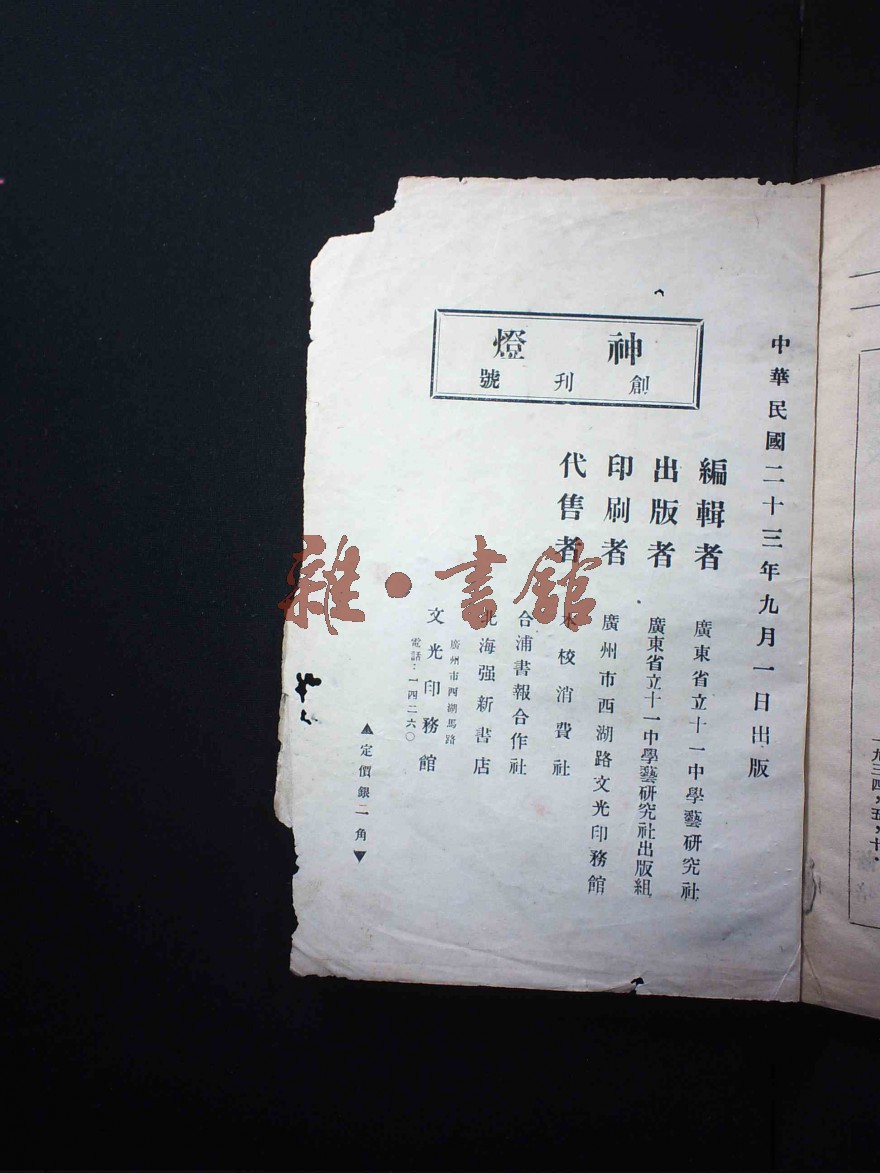 中華民國二十三年九月一日出版
神燈
創刊號
編輯者 廣東省立十一中學藝研究社
出版者 廣東省立十一中學藝研究社出版組
印刷者 廣州市西湖路文光印務館
代售者 本校消費社
合浦書報合作社
北海强新書店
廣州市西湖馬路
文光印務館
電話:一四二六〇
▲定價銀二角▼
雜·書館
一九三四,五,十.